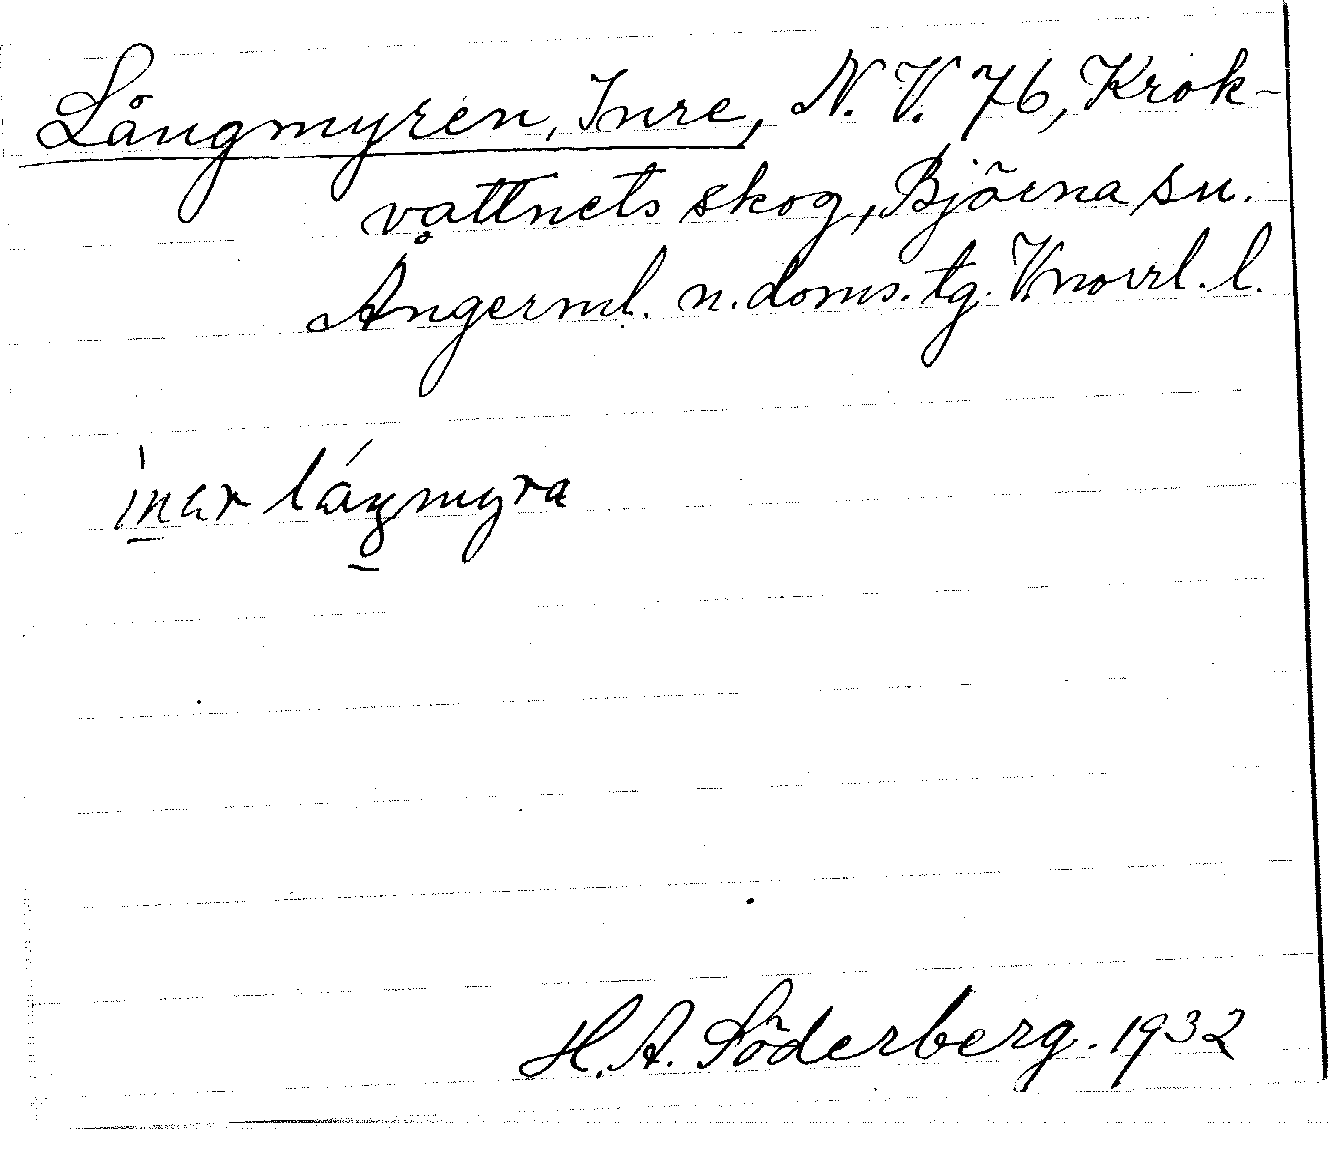 Långmyren, Inre, N. V. 76, Krok-
vattnets skog, Björna sn.
Ångerml. n. doms. tg. V.norrl. l.
ìnər láŋmyra
H. A. Söderberg. 1932